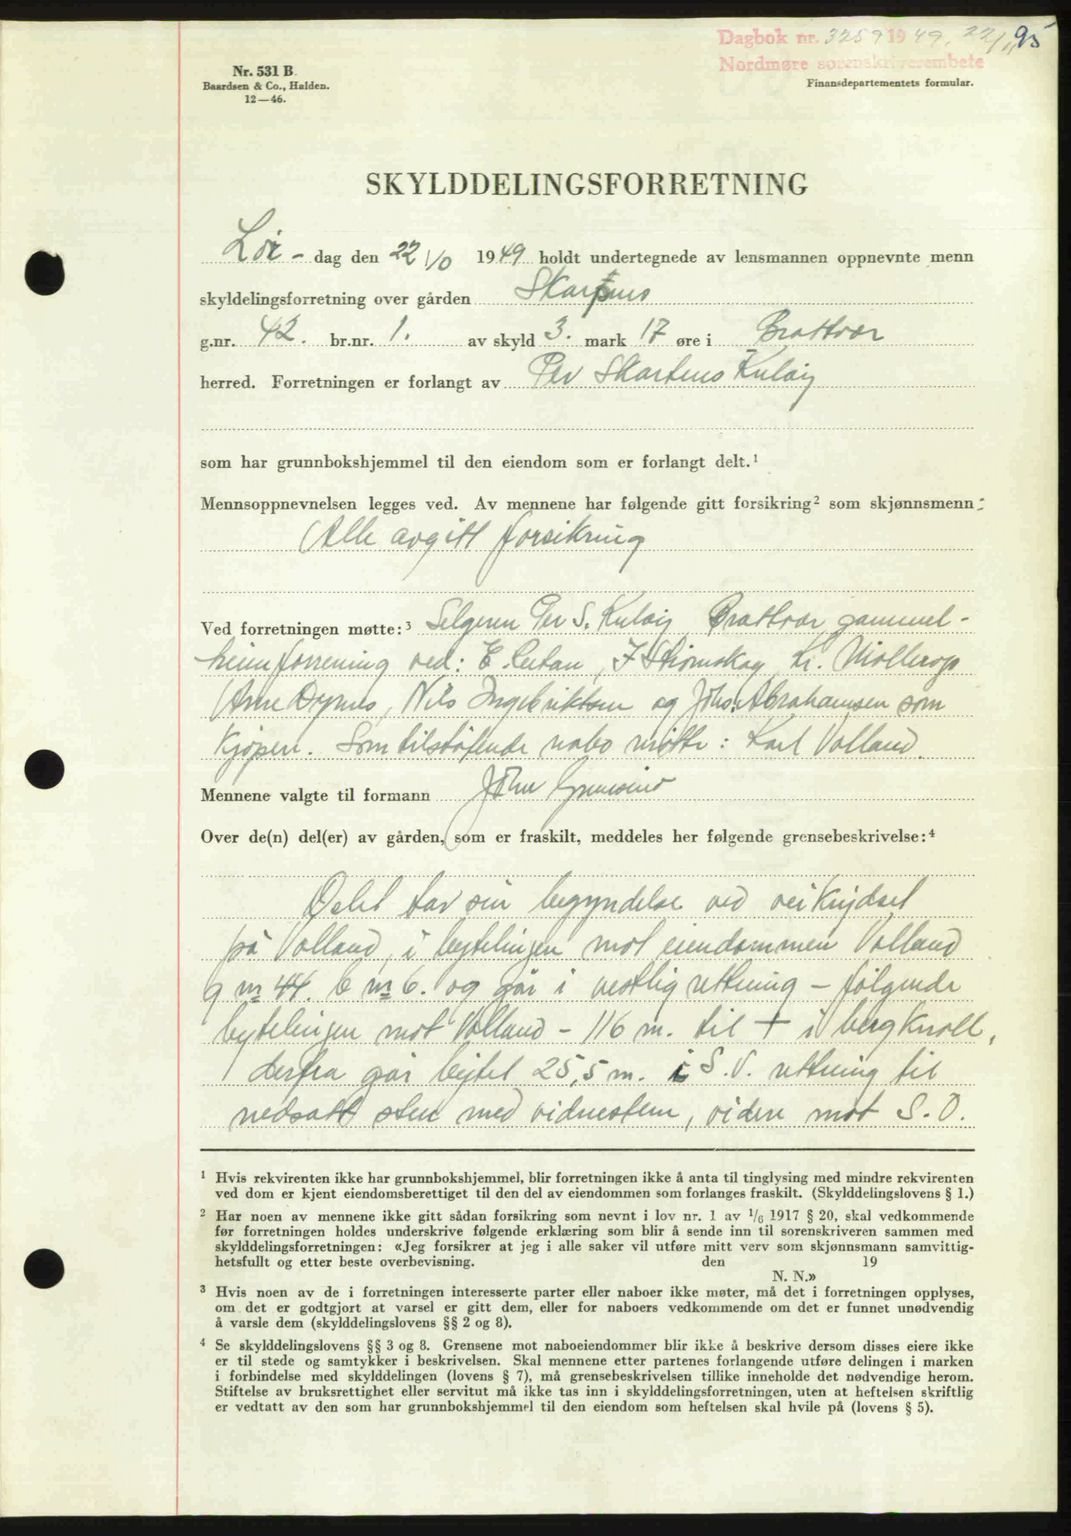 Dagbok nr. 3259 1949. 22/11 95
Nordmøre sorenskriverembete
Nr. 531 B.
Baardsen & Co., Halden.
12—46.
Finansdepartementets formular.
SKYLDDELINGSFORRETNING
Lør - dag den 22 1/0 1949 holdt undertegnede av lensmannen oppnevnte menn
skyldelingsforretning over gården Skarsnes
g.nr. 42. br.nr. 1. av skyld 3. mark 17 øre i Brattvær
herred. Forretningen er forlangt av Per Skarsnes Kuløy
som har grunnbokshjemmel til den eiendom som er forlangt delt.¹
Mennsoppnevnelsen legges ved. Av mennene har følgende gitt forsikring² som skjønnsmenn:
Alle avgitt forsikring
Ved forretningen møtte:³ Selgeren Per S. Kuløy Brattvær gammel-
heimforrening ved: E. Lestan, J Strømskag, Kr. Møllerop
Arne Dyrnes, Nils Ingebriktsen og Johs. Abrahamsen som
kjøper. Som tilstøtende nabo møtte: Karl Volland.
Mennene valgte til formann John
Over de(n) del(er) av gården, som er fraskilt, meddeles her følgende grensebeskrivelse:⁴
Delet tar sin begyndelse ved veikrydset
på Volland, i bytelinjen mot eiendommen Volland
g nr 44. b nr 6. og går i vestlig rettning – følgende
bytelinjen mot Volland – 116 m. til + i bergknoll,
derfra går bytet 25,5 m. i S.V. rettning til
nedsatt sten med vidnesten, videre mot S.O.
¹ Hvis rekvirenten ikke har grunnbokshjemmel, blir forretningen ikke å anta til tinglysing med mindre rekvirenten
ved dom er kjent eiendomsberettiget til den del av eiendommen som forlanges fraskilt. (Skylddelingslovens § 1.)
² Har noen av mennene ikke gitt sådan forsikring som nevnt i lov nr. 1 av 1/6 1917 § 20, skal vedkommende
før forretningen holdes underskrive følgende erklæring som blir å sende inn til sorenskriveren sammen med
skylddelingsforretningen: «Jeg forsikrer at jeg i alle saker vil utføre mitt verv som skjønnsmann samvittig-
hetsfullt og etter beste overbevisning. den 19
N. N.»
³ Hvis noen av de i forretningen interesserte parter eller naboer ikke møter, må det i forretningen opplyses,
om det er godtgjort at varsel er gitt dem, eller for naboers vedkommende om det er funnet unødvendig
å varsle dem (skylddelingslovens §§ 2 og 8).
⁴ Se skylddelingslovens §§ 3 og 8. Grensene mot naboeiendommer blir ikke å beskrive dersom disses eiere ikke
er til stede og samtykker i beskrivelsen. Skal mennene etter partenes forlangende utføre delingen i marken
i forbindelse med skylddelingen (lovens § 7), må grensebeskrivelsen tillike inneholde det nødvendige herom.
Stiftelse av bruksrettighet eller servitut må ikke tas inn i skylddelingsforretningen, uten at heftelsen skriftlig
er vedtatt av den som har grunnbokshjemmel til den eiendom som heftelsen skal hvile på (lovens § 5).